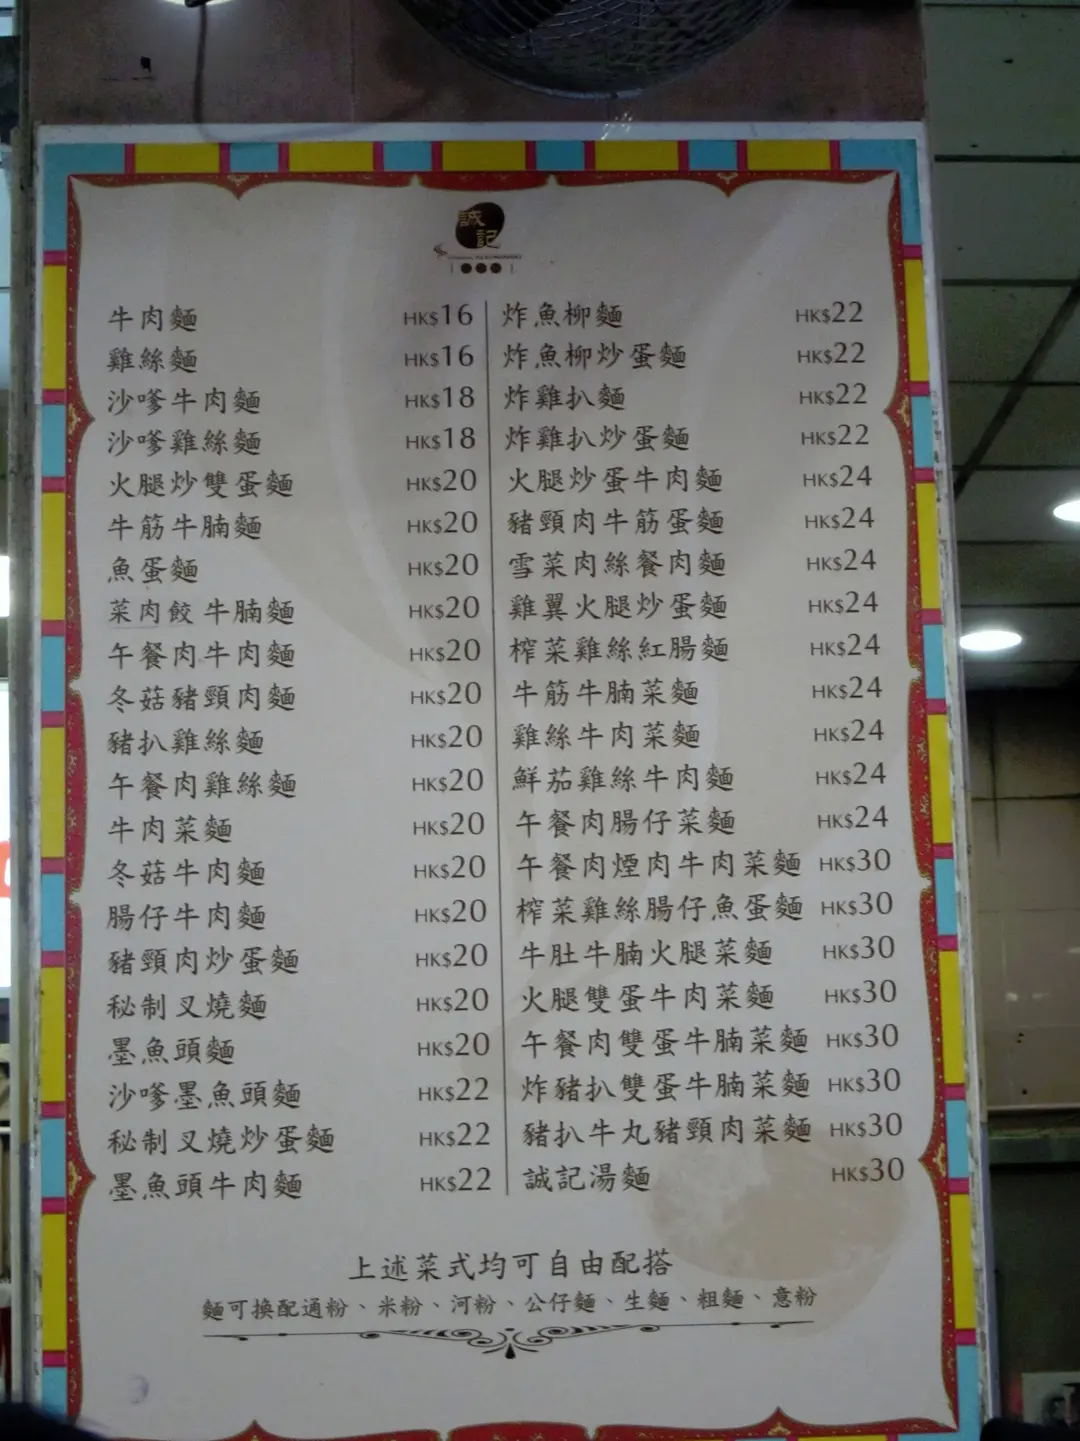 誠記
牛肉麵 HK$16
雞絲麵 HK$16
沙嗲牛肉麵 HK$18
沙嗲雞絲麵 HK$18
火腿炒雙蛋麵 HK$20
牛筋牛腩麵 HK$20
魚蛋麵 HK$20
菜肉餃牛腩麵 HK$20
午餐肉牛肉麵 HK$20
冬菇豬頸肉麵 HK$20
豬扒雞絲麵 HK$20
午餐肉雞絲麵 HK$20
牛肉菜麵 HK$20
冬菇牛肉麵 HK$20
腸仔牛肉麵 HK$20
豬頸肉炒蛋麵 HK$20
秘制叉燒麵 HK$20
墨魚頭麵 HK$20
沙嗲墨魚頭麵 HK$22
秘制叉燒炒蛋麵 HK$22
墨魚頭牛肉麵 HK$22
炸魚柳麵 HK$22
炸魚柳炒蛋麵 HK$22
炸雞扒麵 HK$22
炸雞扒炒蛋麵 HK$22
火腿炒蛋牛肉麵 HK$24
豬頸肉牛筋蛋麵 HK$24
雪菜肉絲餐肉麵 HK$24
雞翼火腿炒蛋麵 HK$24
榨菜雞絲紅腸麵 HK$24
牛筋牛腩菜麵 HK$24
雞絲牛肉菜麵 HK$24
鮮茄雞絲牛肉麵 HK$24
午餐肉腸仔菜麵 HK$24
午餐肉煙肉牛肉菜麵 HK$30
榨菜雞絲腸仔魚蛋麵 HK$30
牛肚牛腩火腿菜麵 HK$30
火腿雙蛋牛肉菜麵 HK$30
午餐肉雙蛋牛腩菜麵 HK$30
炸豬扒雙蛋牛腩菜麵 HK$30
豬扒牛丸豬頸肉菜麵 HK$30
誠記湯麵 HK$30
上述菜式均可自由配搭
麵可換配通粉、米粉、河粉、公仔麵、生麵、粗麵、意粉